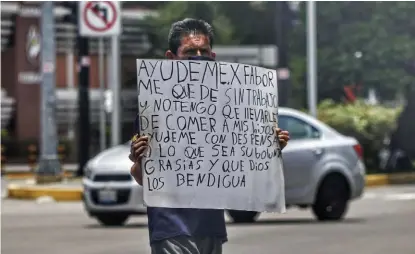 AYUDEMEXFABOR
ME QUEDE SINTRABAJO
Y NOTENGO QUE LLEVARLE
DE COMER A MIS HIJOS
AYUDEME CON DESPENSA
Y LO QUE SEA SUBOLUN
GRASIAS Y QUE DIOS
LOS BENDIGUA